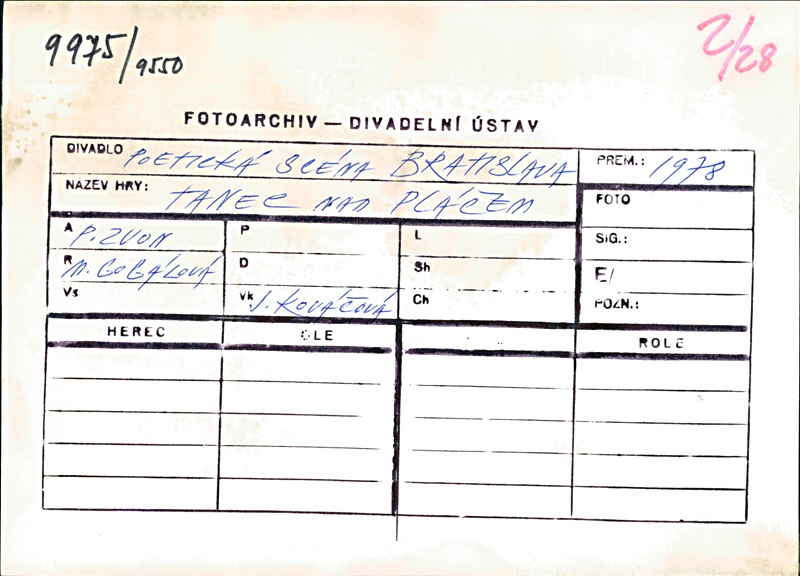 9975/9550
2/28
FOTOARCHIV — DIVADELNÍ ÚSTAV
DIVADLO POETICKÁ SCÉNA BRATISLAVA PREM.: 1978
NÁZEV HRY: TANEC NAD PLÁČEM FOTO
A P. ZVON P L SIG.:
R M. GOGÁĽOVÁ D Sh E/
Vs Vk J. KOVÁČOVÁ Ch POZN.:
HEREC OLE ROLE